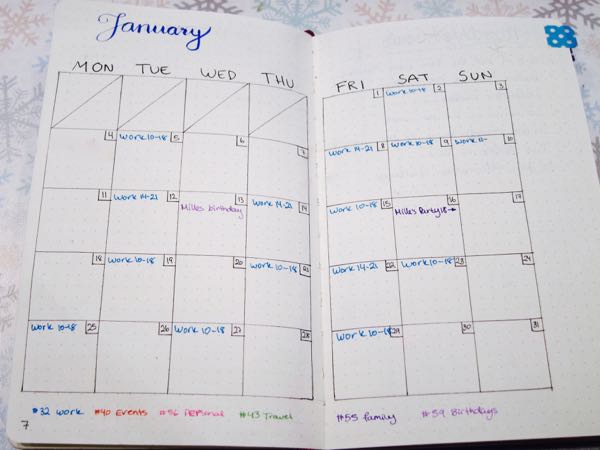 January
MON TUE WED THU FRI SAT SUN
1 Work 10-18 2 3
4 Work 10-18 5 6 7 Work 14-21 8 Work 10-18 9 Work 11- 10
11 Work 14-21 12 Mille's birthday 13 Work 14-21 14 Work 10-18 15 Mille's Party 18→ 16 17
18 Work 10-18 19 20 Work 10-18 21 Work 14-21 22 Work 10-18 23 24
Work 10-18 25 26 Work 10-18 27 28 Work 10-18 29 30 31
#32 Work #40 Events #56 Personal #43 Travel #55 Family #59 Birthdays
7